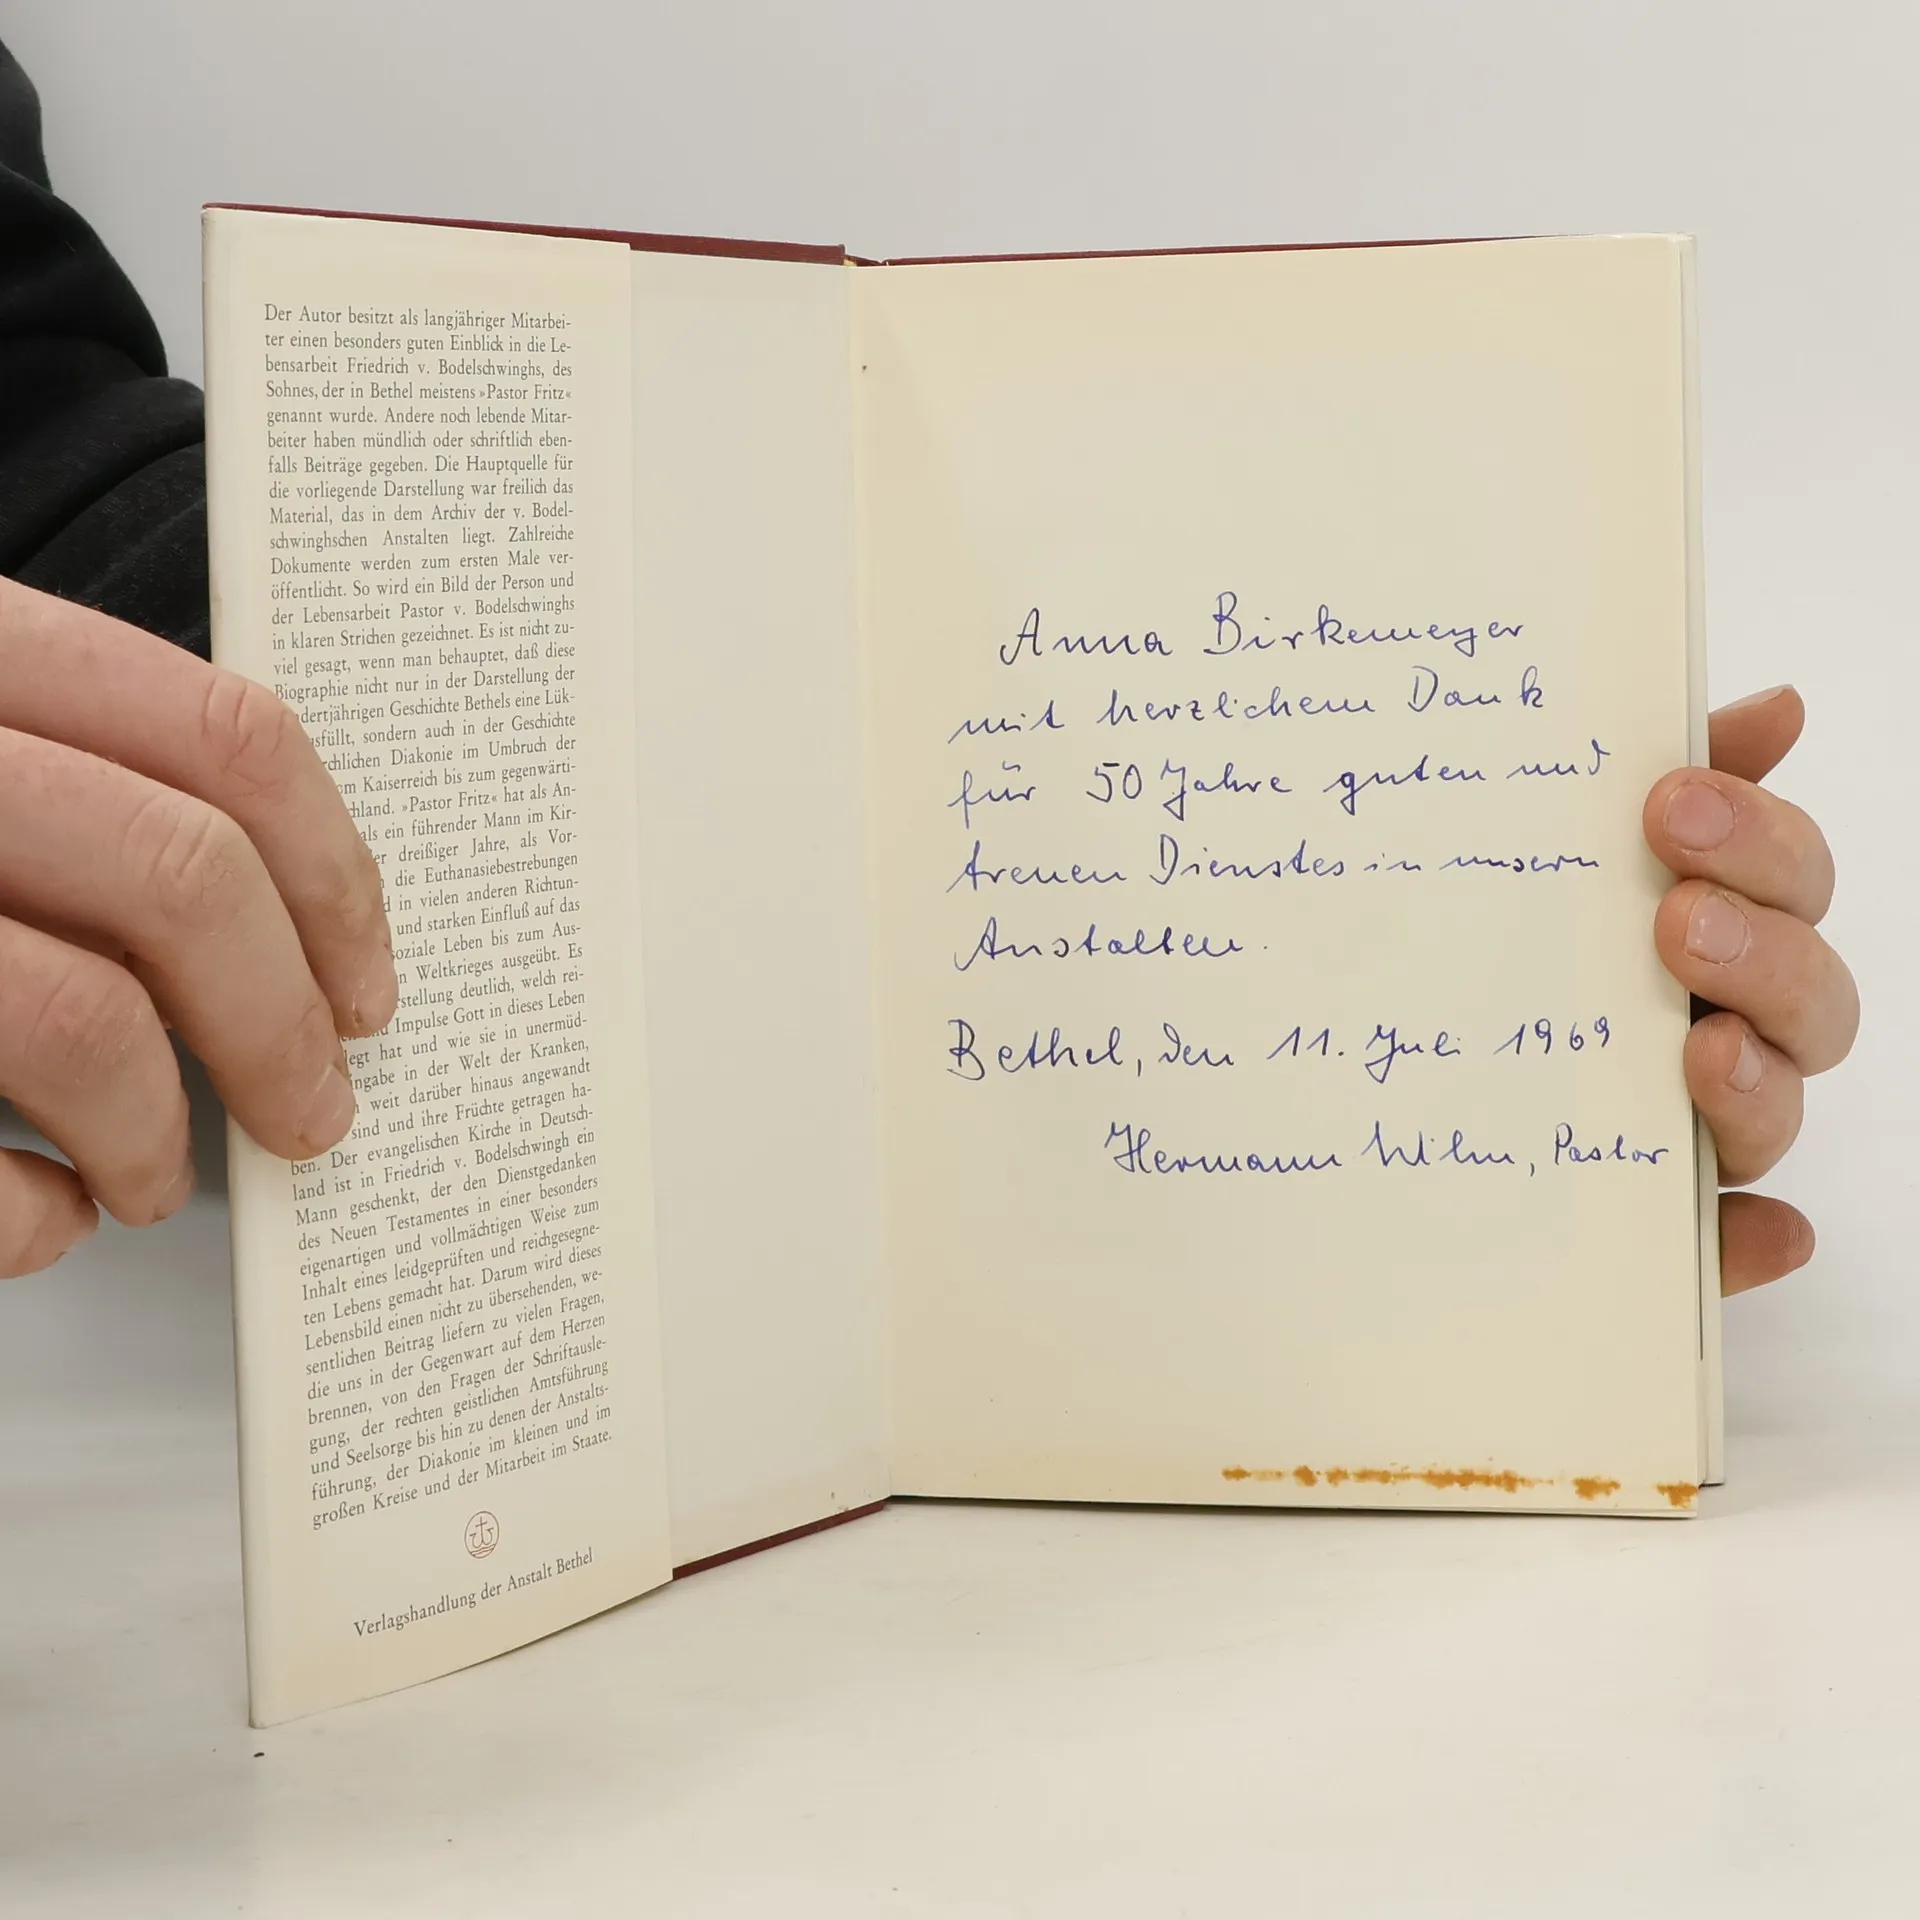 Der Autor besitzt als langjähriger Mitarbei-
ter einen besonders guten Einblick in die Le-
bensarbeit Friedrich v. Bodelschwinghs, des
Sohnes, der in Bethel meistens »Pastor Fritz«
genannt wurde. Andere noch lebende Mitar-
beiter haben mündlich oder schriftlich eben-
falls Beiträge gegeben. Die Hauptquelle für
die vorliegende Darstellung war freilich das
Material, das in dem Archiv der v. Bodel-
schwinghschen Anstalten liegt. Zahlreiche
Dokumente werden zum ersten Male ver-
öffentlicht. So wird ein Bild der Person und
der Lebensarbeit Pastor v. Bodelschwinghs
in klaren Strichen gezeichnet. Es ist nicht zu-
viel gesagt, wenn man behauptet, daß diese
Biographie nicht nur in der Darstellung der
dertjährigen Geschichte Bethels eine Lük-
sfüllt, sondern auch in der Geschichte
chlichen Diakonie im Umbruch der
om Kaiserreich bis zum gegenwärti-
chland. »Pastor Fritz« hat als An-
als ein führender Mann im Kir-
er dreißiger Jahre, als Vor-
die Euthanasiebestrebungen
d in vielen anderen Richtun-
und starken Einfluß auf das
soziale Leben bis zum Aus-
n Weltkrieges ausgeübt. Es
rstellung deutlich, welch rei-
Impulse Gott in dieses Leben
legt hat und wie sie in unermüd-
ingabe in der Welt der Kranken,
weit darüber hinaus angewandt
sind und ihre Früchte getragen ha-
ben. Der evangelischen Kirche in Deutsch-
land ist in Friedrich v. Bodelschwingh ein
Mann geschenkt, der den Dienstgedanken
des Neuen Testamentes in einer besonders
eigenartigen und vollmächtigen Weise zum
Inhalt eines leidgeprüften und reichgesegne-
ten Lebens gemacht hat. Darum wird dieses
Lebensbild einen nicht zu übersehenden, we-
sentlichen Beitrag liefern zu vielen Fragen,
die uns in der Gegenwart auf dem Herzen
brennen, von den Fragen der Schriftausle-
gung, der rechten geistlichen Amtsführung
und Seelsorge bis hin zu denen der Anstalts-
führung, der Diakonie im kleinen und im
großen Kreise und der Mitarbeit im Staate.
Verlagshandlung der Anstalt Bethel
Anna Birkemeyer
mit herzlichem Dank
für 50 Jahre guten und
treuen Dienstes in unsern
Anstalten.
Bethel, den 11. Juli 1969
Hermann Wilm, Pastor